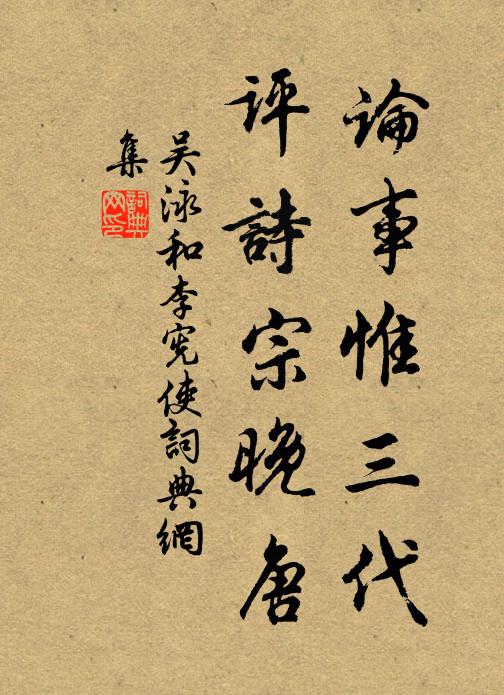 論事惟三代
評詩宗晚唐
吴泳和李宪使詞典網
集
詞典网印